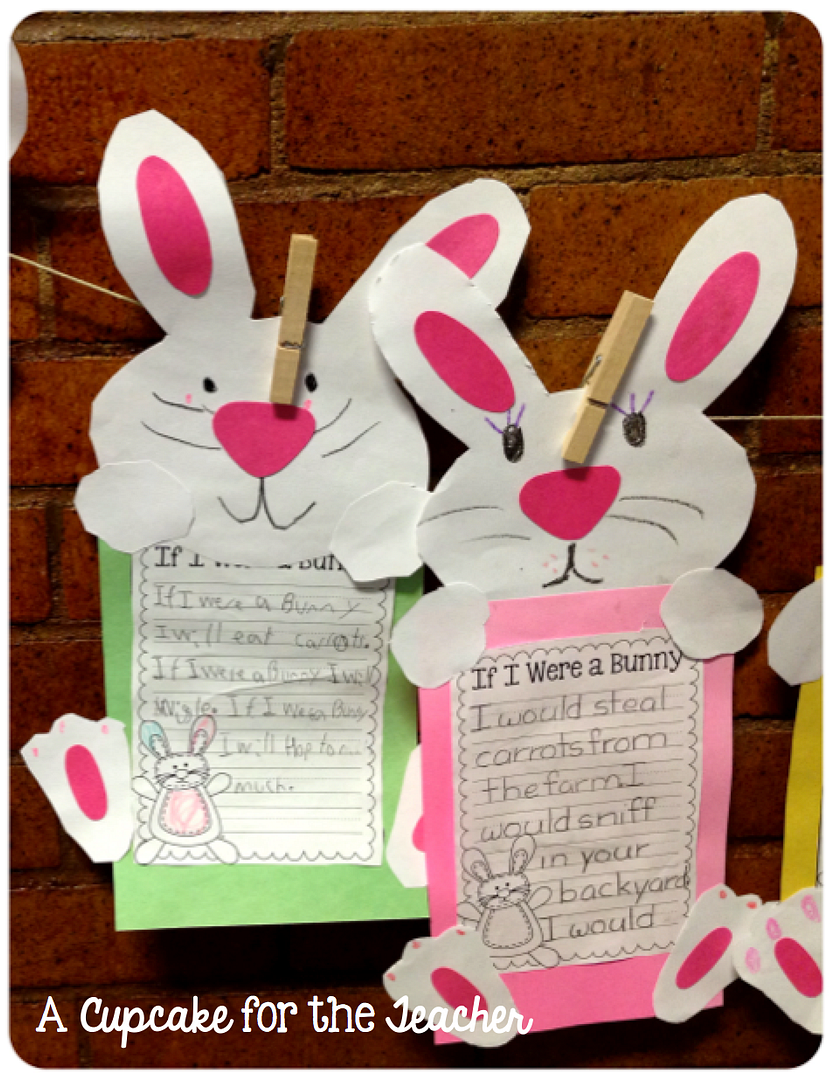 If I Were a Bun
If I were a Bunny
I will eat carrots.
If I were a Bunny I will
wigle. If I Were a Bunny
I will Hop to
much.
If I Were a Bunny
I would steal
carrots from
the farm. I
would sniff
in your
backyard
I would
A Cupcake for the Teacher